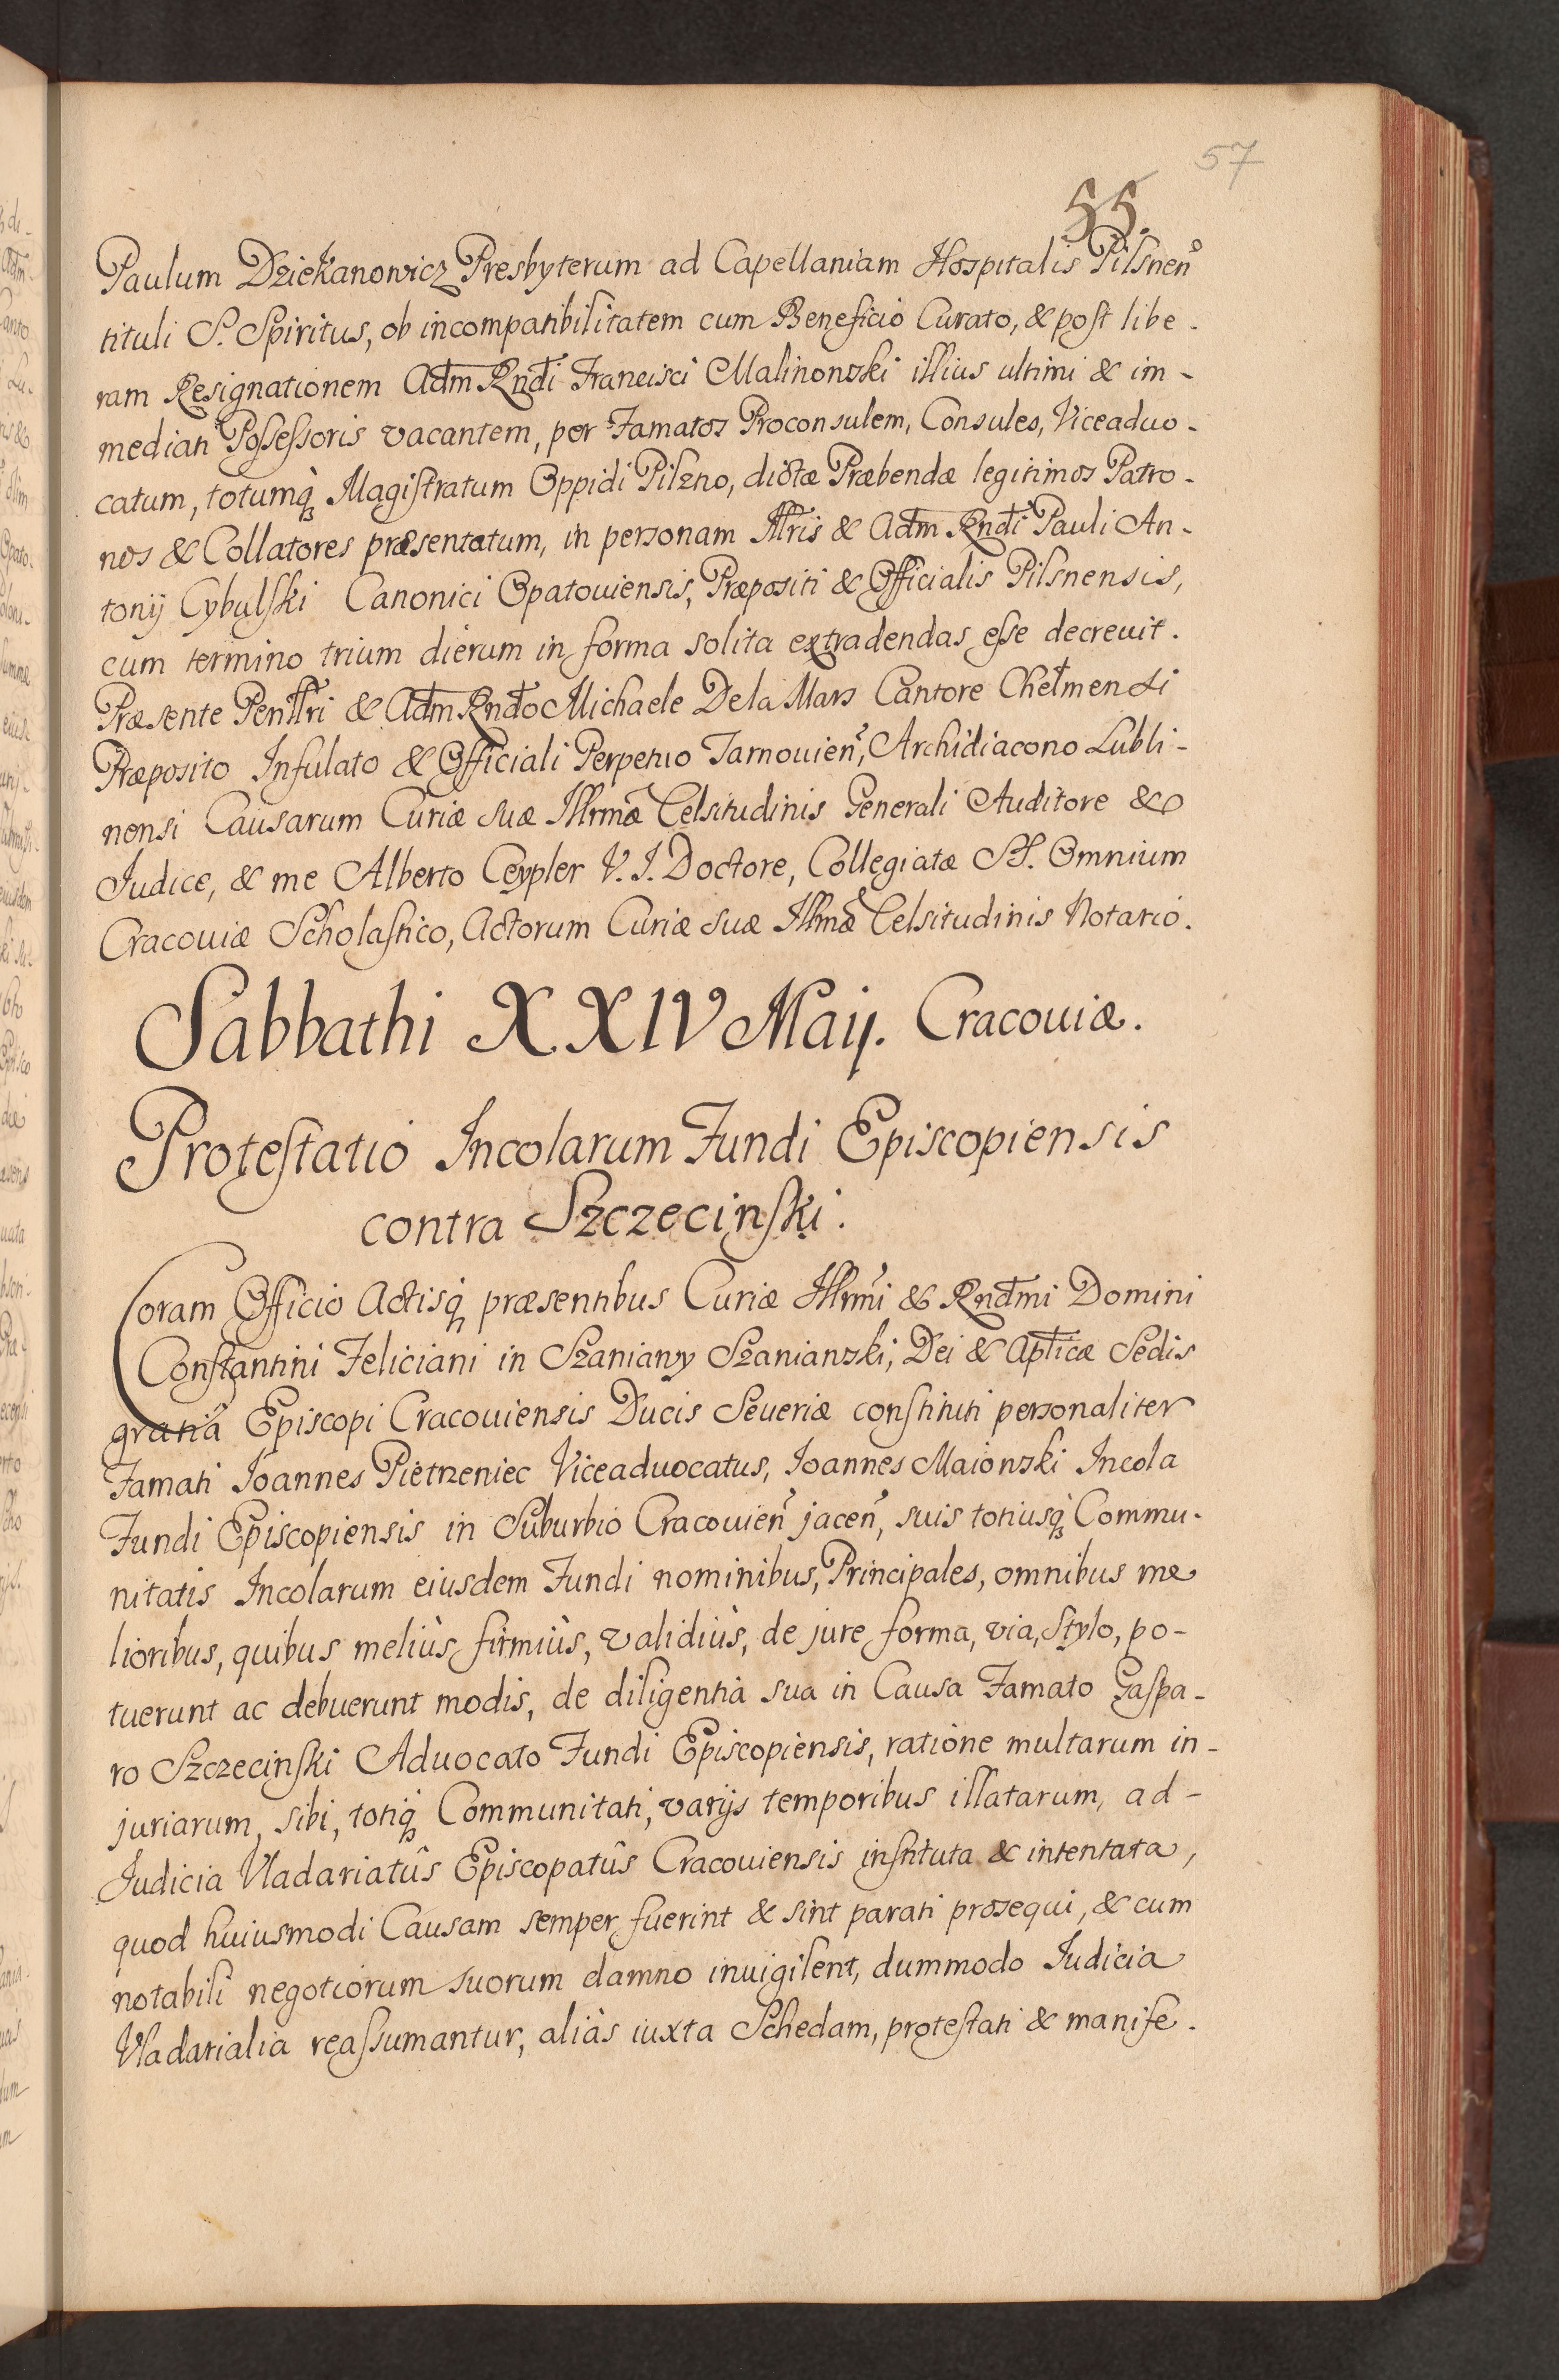 57
55.
Paulum Dziekanowicz Presbyterum ad Capellaniam Hospitalis Pilsneñ
tituli S. Spiritus, ob incompatibilitatem cum Beneficio Curato, & post libe-
ram Resignationem Adm Rndi Francisci Malinowski illius ultimi & im-
mediati Possessoris vacantem, per Famatos Proconsulem, Consules, Viceaduo-
catum, totumq́ Magistratum Oppidi Pilzno, dictæ Præbendæ legitimos Patro-
nos & Collatores præsentatum, in personam Illris & Adm Rndi Pauli An-
tonij Cybulski Canonici Opatouiensis, Præpositi & Officialis Pilsnensis,
cum termino trium dierum in forma solita extradendas esse decreuit.
Præsente Penllri & Adm Rndo Michaele De la Mars Cantore Chełmensi
Præposito Infulato & Officiali Perpetuo Tarnouień, Archidiacono Lubli-
nensi Causarum Curiæ suæ Illrmæ Celsitudinis Generali Auditore &
Judice, & me Alberto Ceypler V. J. Doctore, Collegiatæ SS. Omnium
Cracouiæ Scholastico, Actorum Curiæ suæ Illmæ Celsitudinis Notario.
Sabbathi XXIV Maij. Cracouiæ.
Protestatio Incolarum Fundi Episcopiensis
contra Szczecinski.
Coram Officio Actisq́ præsentibus Curiæ Illrmi & Rndmi Domini
Constantini Feliciani in Szaniawy Szaniawski, Dei & Aplicæ Sedis
gratiâ Episcopi Cracouiensis Ducis Seueriæ constituti personaliter
Famati Joannes Pietrzeniec Viceaduocatus, Joannes Maiowski Incola
Fundi Episcopiensis in Suburbio Cracouień jaceń, suis totiusq́ Commu-
nitatis Incolarum eiusdem Fundi nominibus, Principales, omnibus me
lioribus, quibus meliùs firmiùs, validiùs, de jure forma, via, stylo, po-
tuerunt ac debuerunt modis, de diligentia sua in Causa Famato Gaspa-
ro Szczecinski Aduocato Fundi Episcopiensis, ratione multarum in-
juriarum, sibi, totiq́ Communitati, varijs temporibus illatarum, ad-
Judicia Vladariatûs Episcopatûs Cracouiensis instituta & intentata,
quod huiusmodi Causam semper fuerint & sint parati prosequi, & cum
notabili negotiorum suorum damno inuigilent, dummodo Judicia
Vladarialia reassumantur, aliàs iuxta Schedam, protestati & manife-